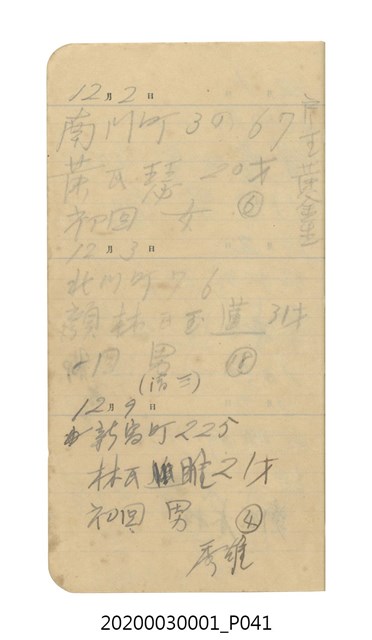 12月2日
南川町3の67
葉氏慧 20才
初回 女 ⑥
12月3日
北川町76
顔林氏玉蓮 31才
回 男
(清三)
12月9日
新富町225
林氏雎21才
初回 男 ④
秀雄
20200030001_P041